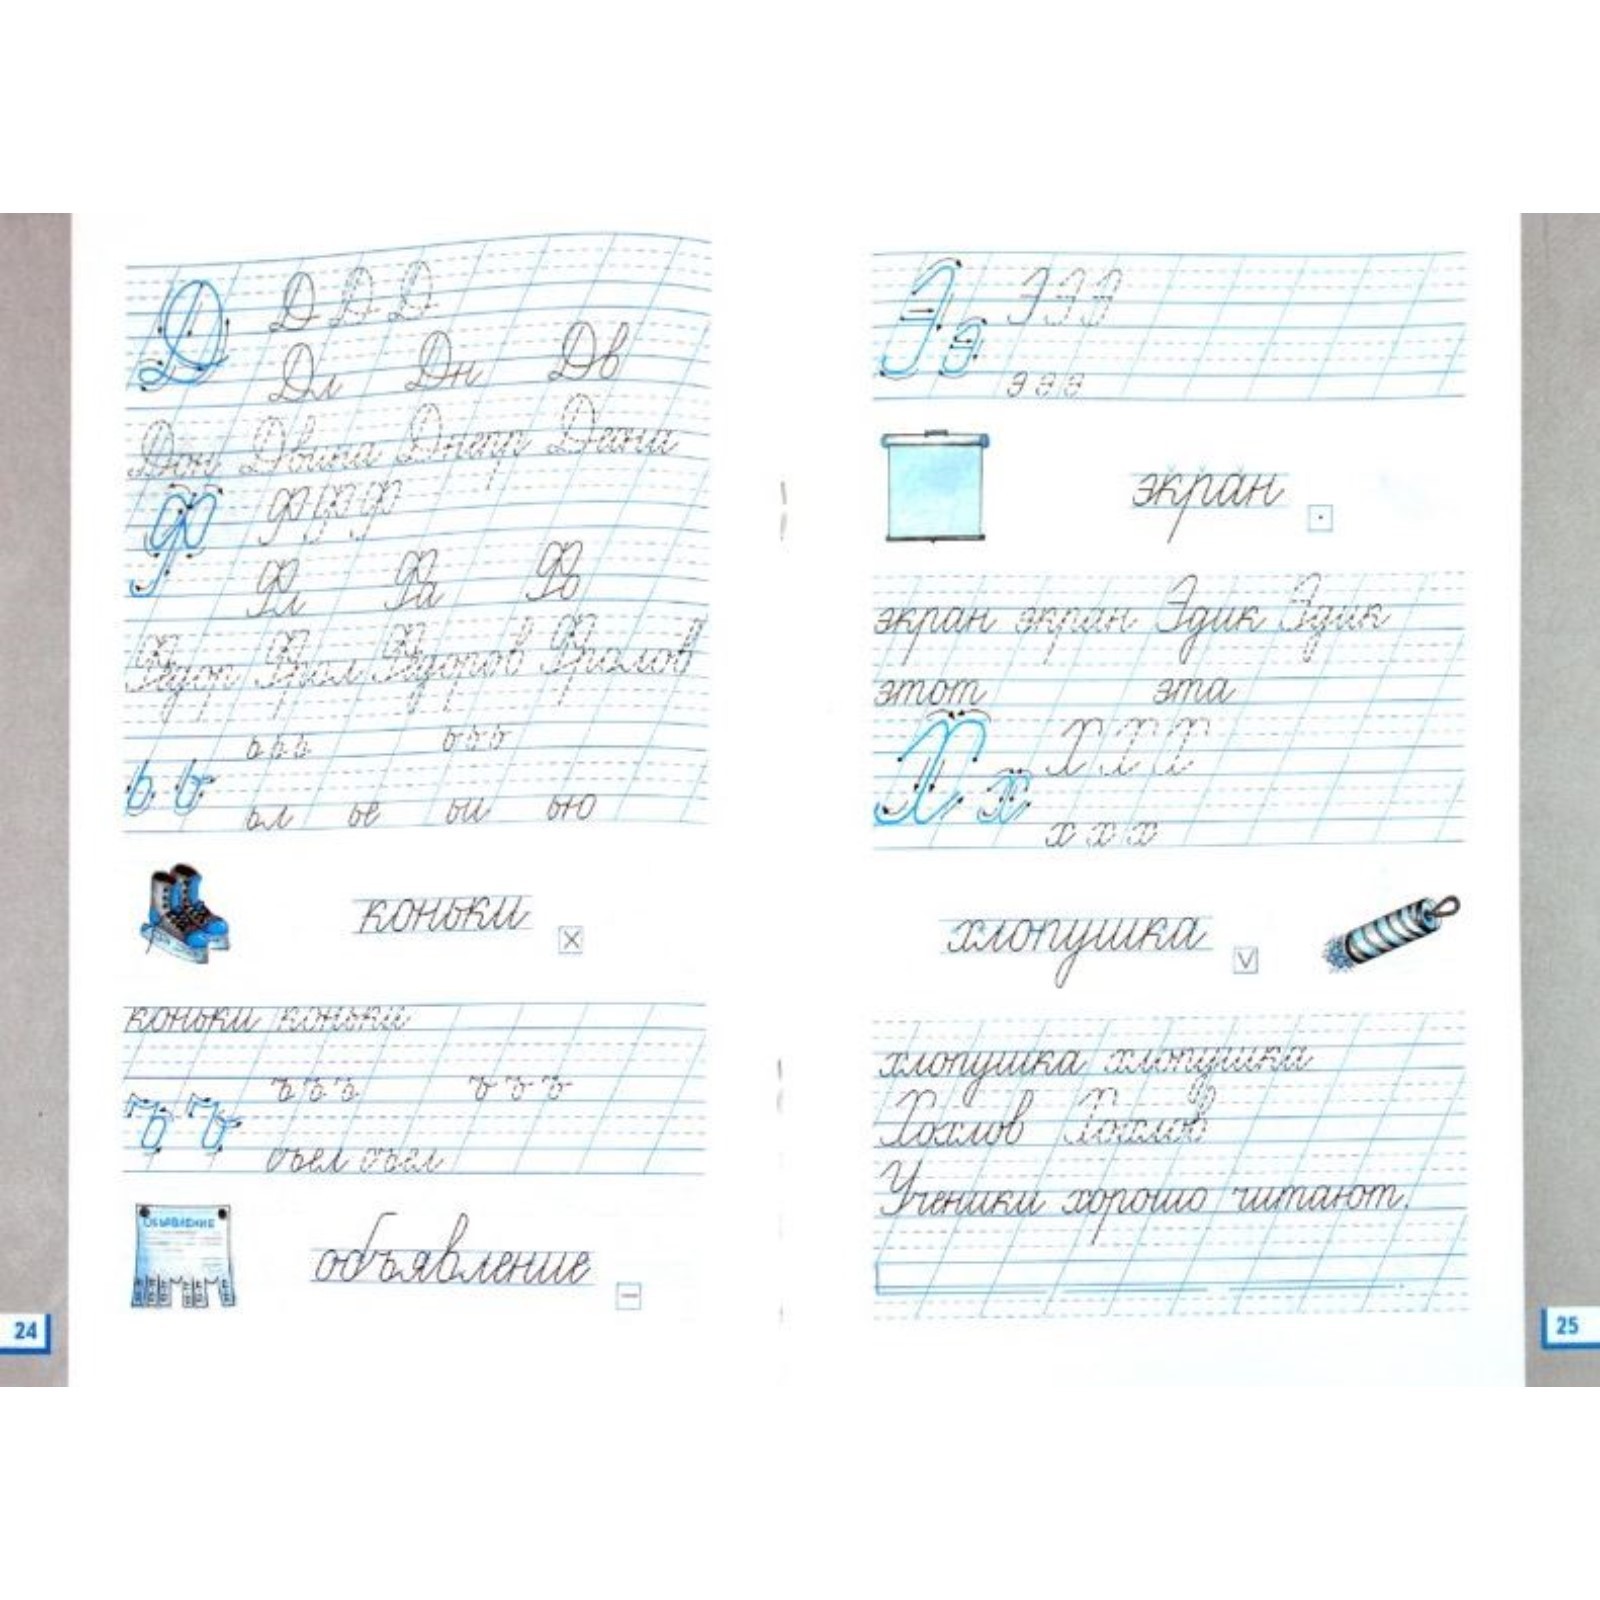 Д Д Д Д
Дл Дн Дв
Дон Двина Днепр Десна
Ф Ф Ф Ф
Фл Фа Фв
Фёдор Фрол Фёдоров Фролов
ььь ььь
ь ь
ьл ье ьи ью
коньки
X
коньки коньки
ъъъ ъъъ
ъ ъ
съел съел
ОБЪЯВЛЕНИЕ
объявление
—
24
Э э Э Э Э
э э э
экран
·
экран экран Эдик Эдик
этот эта
Х х Х Х Х
х х х
хлопушка
V
хлопушка хлопушка
Хохлов Хохлов
Ученики хорошо читают.
25